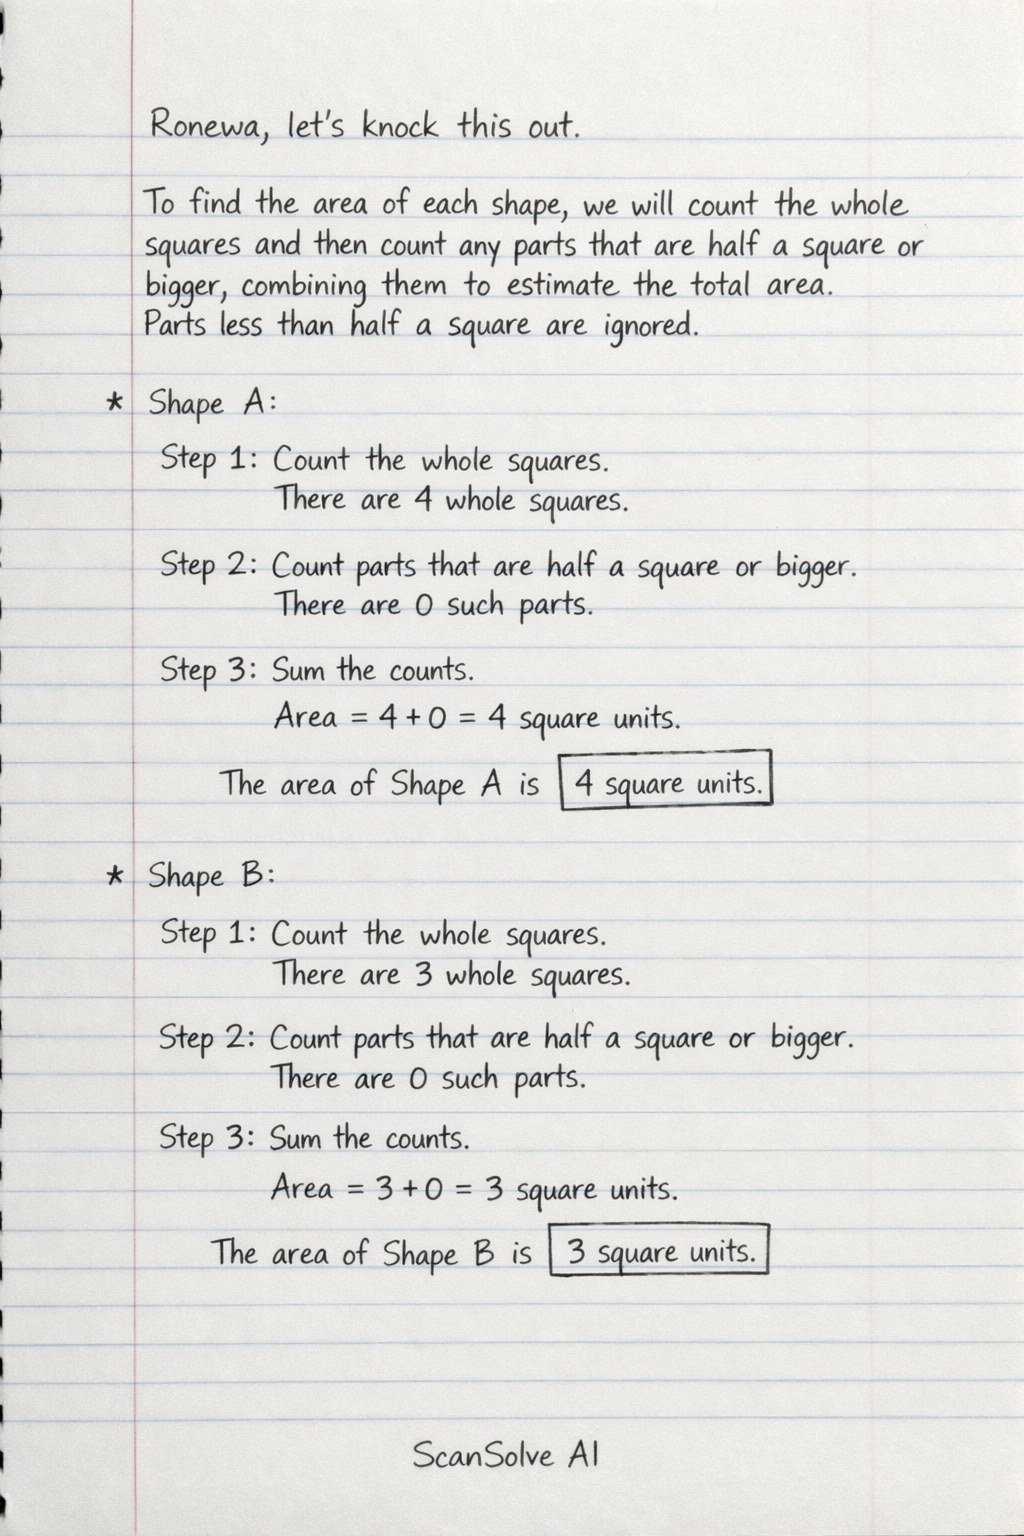 Ronewa, let's knock this out.
To find the area of each shape, we will count the whole
squares and then count any parts that are half a square or
bigger, combining them to estimate the total area.
Parts less than half a square are ignored.
* Shape A:
Step 1: Count the whole squares.
There are 4 whole squares.
Step 2: Count parts that are half a square or bigger.
There are 0 such parts.
Step 3: Sum the counts.
Area = 4 + 0 = 4 square units.
The area of Shape A is 4 square units.
* Shape B:
Step 1: Count the whole squares.
There are 3 whole squares.
Step 2: Count parts that are half a square or bigger.
There are 0 such parts.
Step 3: Sum the counts.
Area = 3 + 0 = 3 square units.
The area of Shape B is 3 square units.
ScanSolve AI